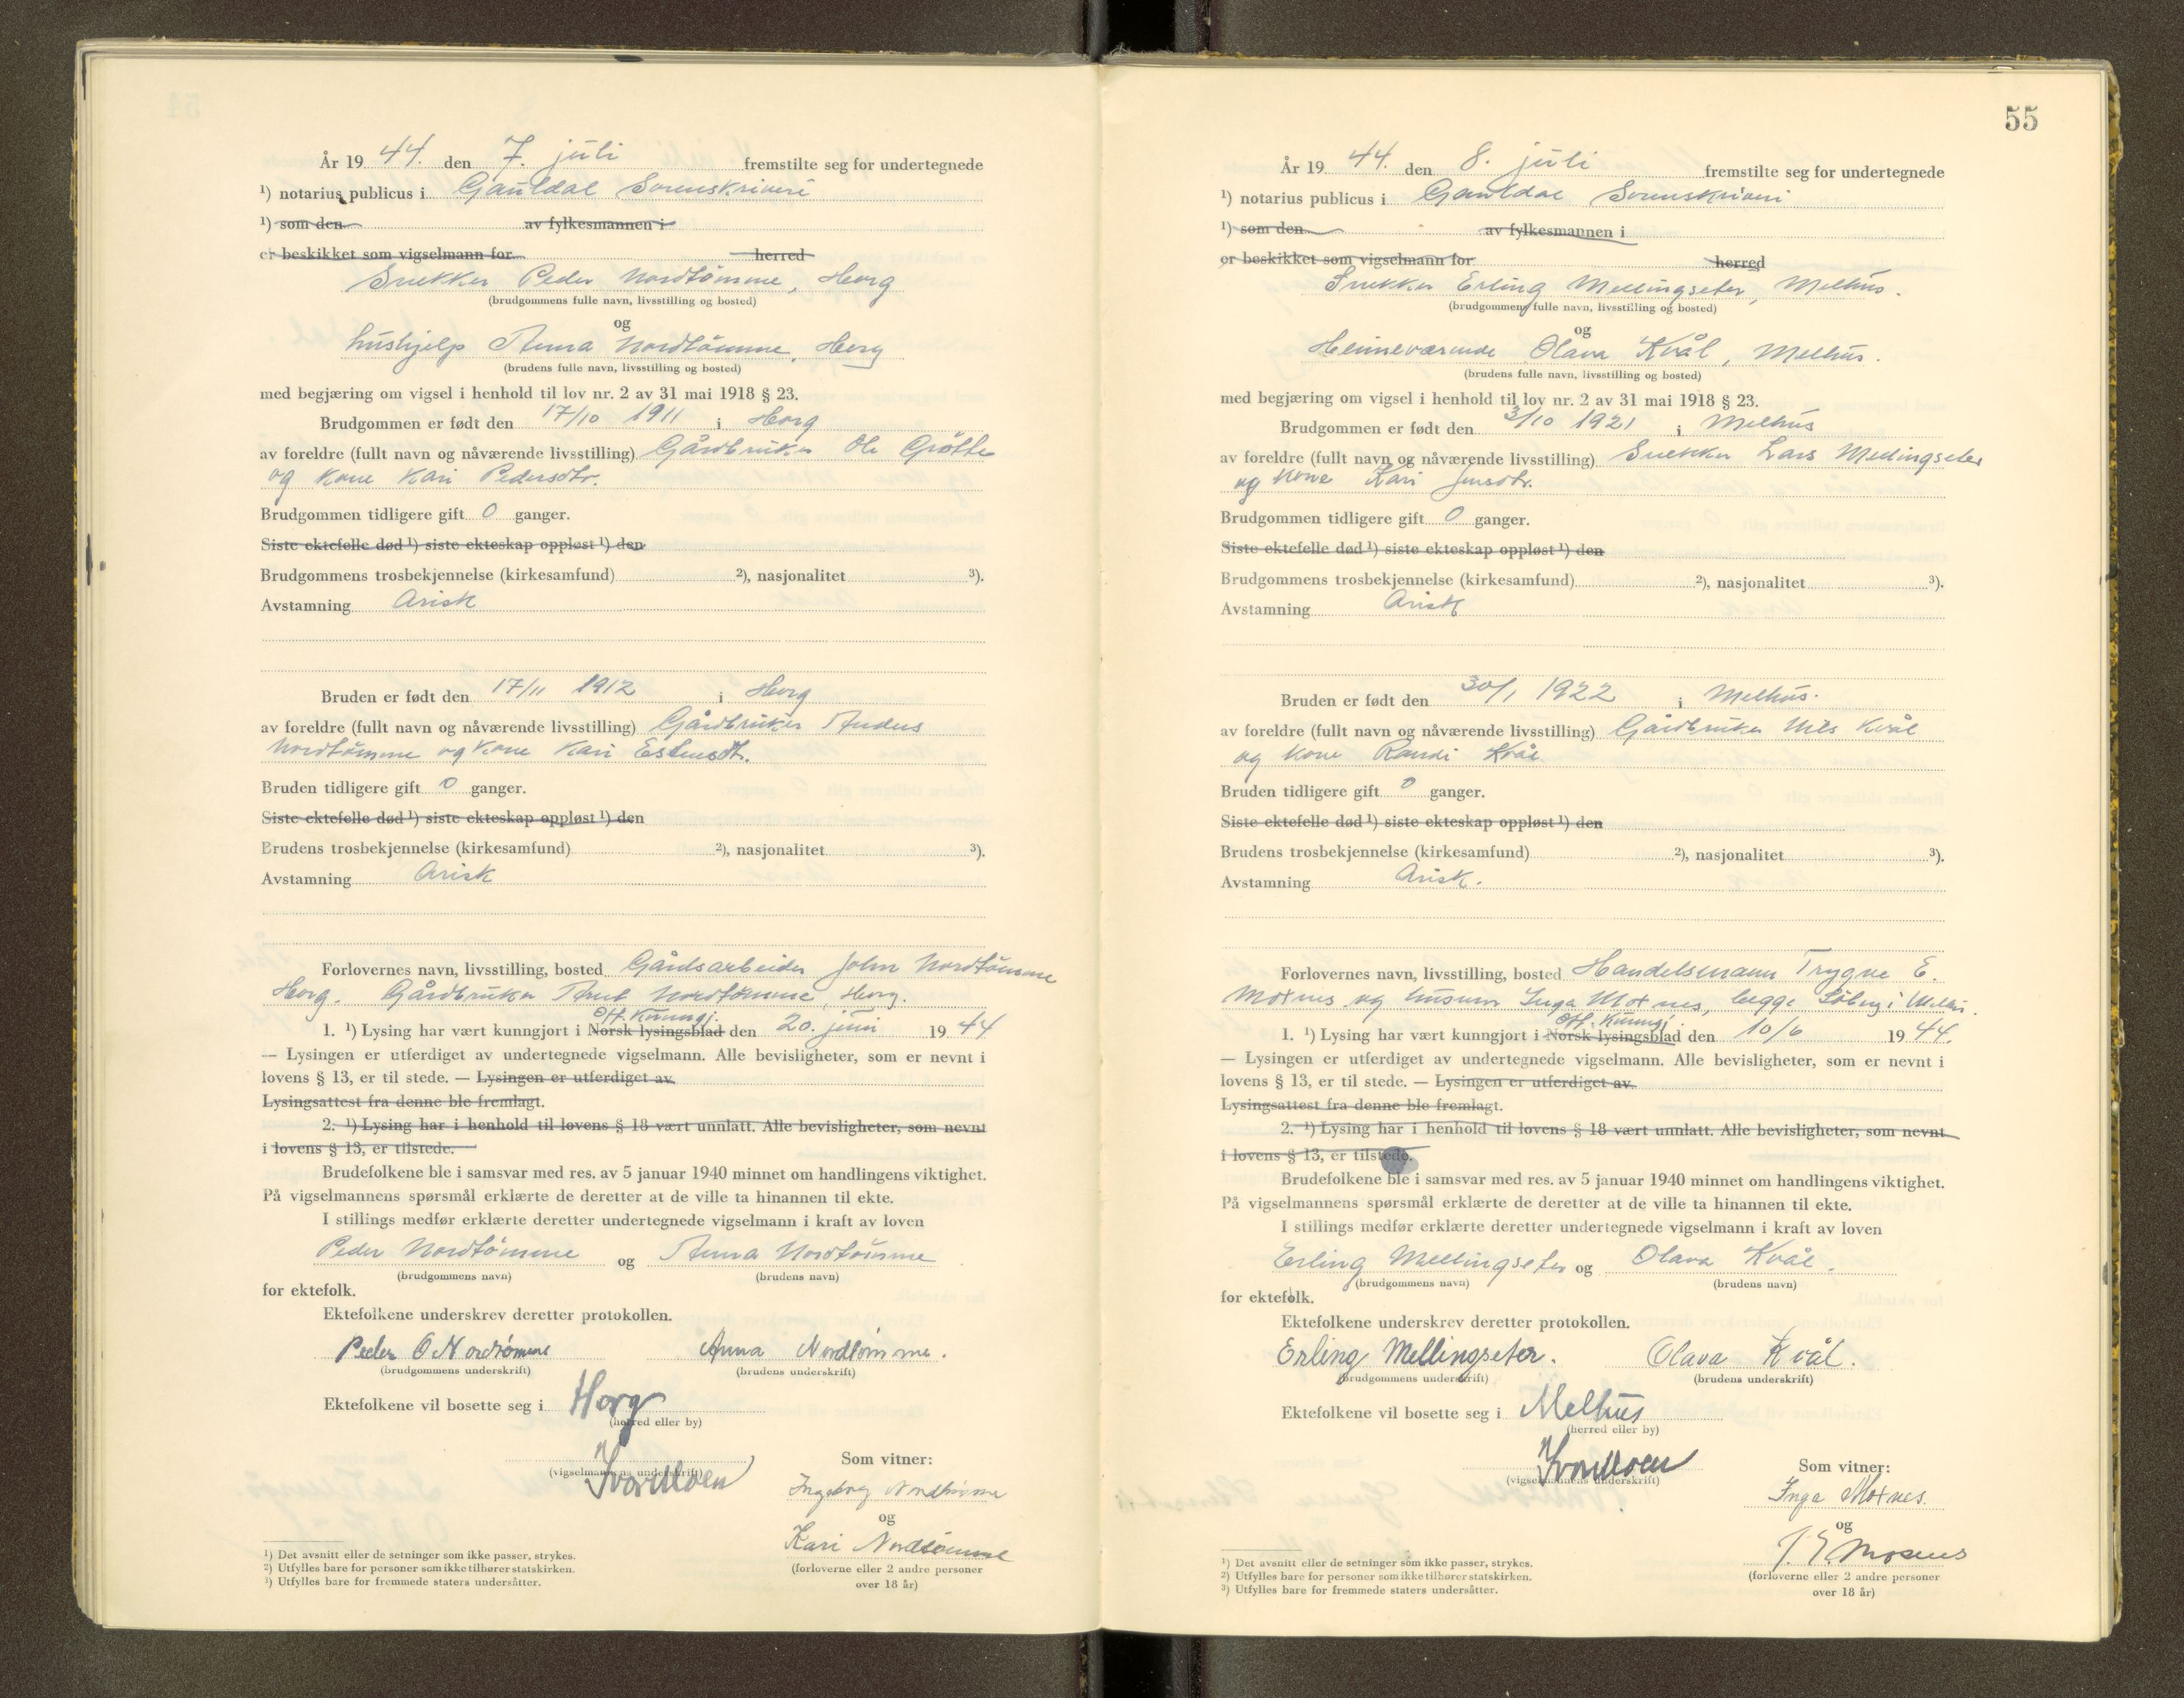 År 19 44. den 7. juli fremstilte seg for undertegnede
¹) notarius publicus i Gauldal Sorenskriveri
¹) som den av fylkesmannen i
er beskikket som vigselmann for herred
Snekker Peder Nordtømme, Horg
(brudgommens fulle navn, livsstilling og bosted)
og
hushjelp Anna Nordtømme, Horg
(brudens fulle navn, livsstilling og bosted)
med begjæring om vigsel i henhold til lov nr. 2 av 31 mai 1918 § 23.
Brudgommen er født den 17/10 1911 i Horg
av foreldre (fullt navn og nåværende livsstilling) Gårdbruker Ole Grötte
og kone Kari Pedersdtr.
Brudgommen tidligere gift 0 ganger.
Siste ektefelle død ¹) siste ekteskap oppløst ¹) den
Brudgommens trosbekjennelse (kirkesamfund) ²), nasjonalitet ³).
Avstamning Arisk
Bruden er født den 17/11 1912 i Horg
av foreldre (fullt navn og nåværende livsstilling) Gårdbruker Anders
Nordtømme og kone Kari Estensdtr.
Bruden tidligere gift 0 ganger.
Siste ektefelle død ¹) siste ekteskap oppløst ¹) den
Brudens trosbekjennelse (kirkesamfund) ²), nasjonalitet ³).
Avstamning Arisk
Forlovernes navn, livsstilling, bosted Gårdsarbeider John Nordtømme
Horg. Gårdbruker Arnt Nordtømme, Horg.
Off. Kunngj.
1. ¹) Lysing har vært kunngjort i Norsk lysingsblad den 20. juni 19 44
— Lysingen er utferdiget av undertegnede vigselmann. Alle bevisligheter, som er nevnt i
lovens § 13, er til stede. — Lysingen er utferdiget av
Lysingsattest fra denne ble fremlagt.
2. ¹) Lysing har i henhold til lovens § 18 vært unnlatt. Alle bevisligheter, som nevnt
i lovens § 13, er tilstede.
Brudefolkene ble i samsvar med res. av 5 januar 1940 minnet om handlingens viktighet.
På vigselmannens spørsmål erklærte de deretter at de ville ta hinannen til ekte.
I stillings medfør erklærte deretter undertegnede vigselmann i kraft av loven
Peder Nordtømme og Anna Nordtømme
(brudgommens navn) (brudens navn)
for ektefolk.
Ektefolkene underskrev deretter protokollen.
Peder O Nordtømme Anna Nordtømme.
(brudgommens underskrift) (brudens underskrift)
Ektefolkene vil bosette seg i Horg
(herred eller by)
(vigselmannens underskrift)
Som vitner:
Ingeborg Nordtømme
og
Kari Nordtømme
(forloverne eller 2 andre personer
over 18 år)
¹) Det avsnitt eller de setninger som ikke passer, strykes.
²) Utfylles bare for personer som ikke tilhører statskirken.
³) Utfylles bare for fremmede staters undersåtter.
55
År 19 44. den 8. juli fremstilte seg for undertegnede
¹) notarius publicus i Gauldal Sorenskriveri
¹) som den av fylkesmannen i
er beskikket som vigselmann for herred
Snekker Erling Mellingseter, Melhus.
(brudgommens fulle navn, livsstilling og bosted)
og
Heimeværende Olava Kvål, Melhus.
(brudens fulle navn, livsstilling og bosted)
med begjæring om vigsel i henhold til lov nr. 2 av 31 mai 1918 § 23.
Brudgommen er født den 3/10 1921 i Melhus
av foreldre (fullt navn og nåværende livsstilling) Snekker Lars Mellingseter
og kone Kari Jensdtr.
Brudgommen tidligere gift 0 ganger.
Siste ektefelle død ¹) siste ekteskap oppløst ¹) den
Brudgommens trosbekjennelse (kirkesamfund) ²), nasjonalitet ³).
Avstamning Arisk
Bruden er født den 30/1 1922 i Melhus.
av foreldre (fullt navn og nåværende livsstilling) Gårdbruker Nils Kvål
og kone Randi Kvål
Bruden tidligere gift 0 ganger.
Siste ektefelle død ¹) siste ekteskap oppløst ¹) den
Brudens trosbekjennelse (kirkesamfund) ²), nasjonalitet ³).
Avstamning Arisk.
Forlovernes navn, livsstilling, bosted Handelsmann Trygve E.
Moxnes og husmor Inga Moxnes, begge Söberg i Melhus.
Off. Kunngj.
1. ¹) Lysing har vært kunngjort i Norsk lysingsblad den 10/6 19 44.
— Lysingen er utferdiget av undertegnede vigselmann. Alle bevisligheter, som er nevnt i
lovens § 13, er til stede. — Lysingen er utferdiget av
Lysingsattest fra denne ble fremlagt.
2. ¹) Lysing har i henhold til lovens § 18 vært unnlatt. Alle bevisligheter, som nevnt
i lovens § 13, er tilstede.
Brudefolkene ble i samsvar med res. av 5 januar 1940 minnet om handlingens viktighet.
På vigselmannens spørsmål erklærte de deretter at de ville ta hinannen til ekte.
I stillings medfør erklærte deretter undertegnede vigselmann i kraft av loven
Erling Mellingseter og Olava Kvål.
(brudgommens navn) (brudens navn)
for ektefolk.
Ektefolkene underskrev deretter protokollen.
Erling Mellingseter. Olava Kvål.
(brudgommens underskrift) (brudens underskrift)
Ektefolkene vil bosette seg i Melhus
(herred eller by)
(vigselmannens underskrift)
Som vitner:
Inga Moxnes.
og
T. E. Moxnes
(forloverne eller 2 andre personer
over 18 år)
¹) Det avsnitt eller de setninger som ikke passer, strykes.
²) Utfylles bare for personer som ikke tilhører statskirken.
³) Utfylles bare for fremmede staters undersåtter.